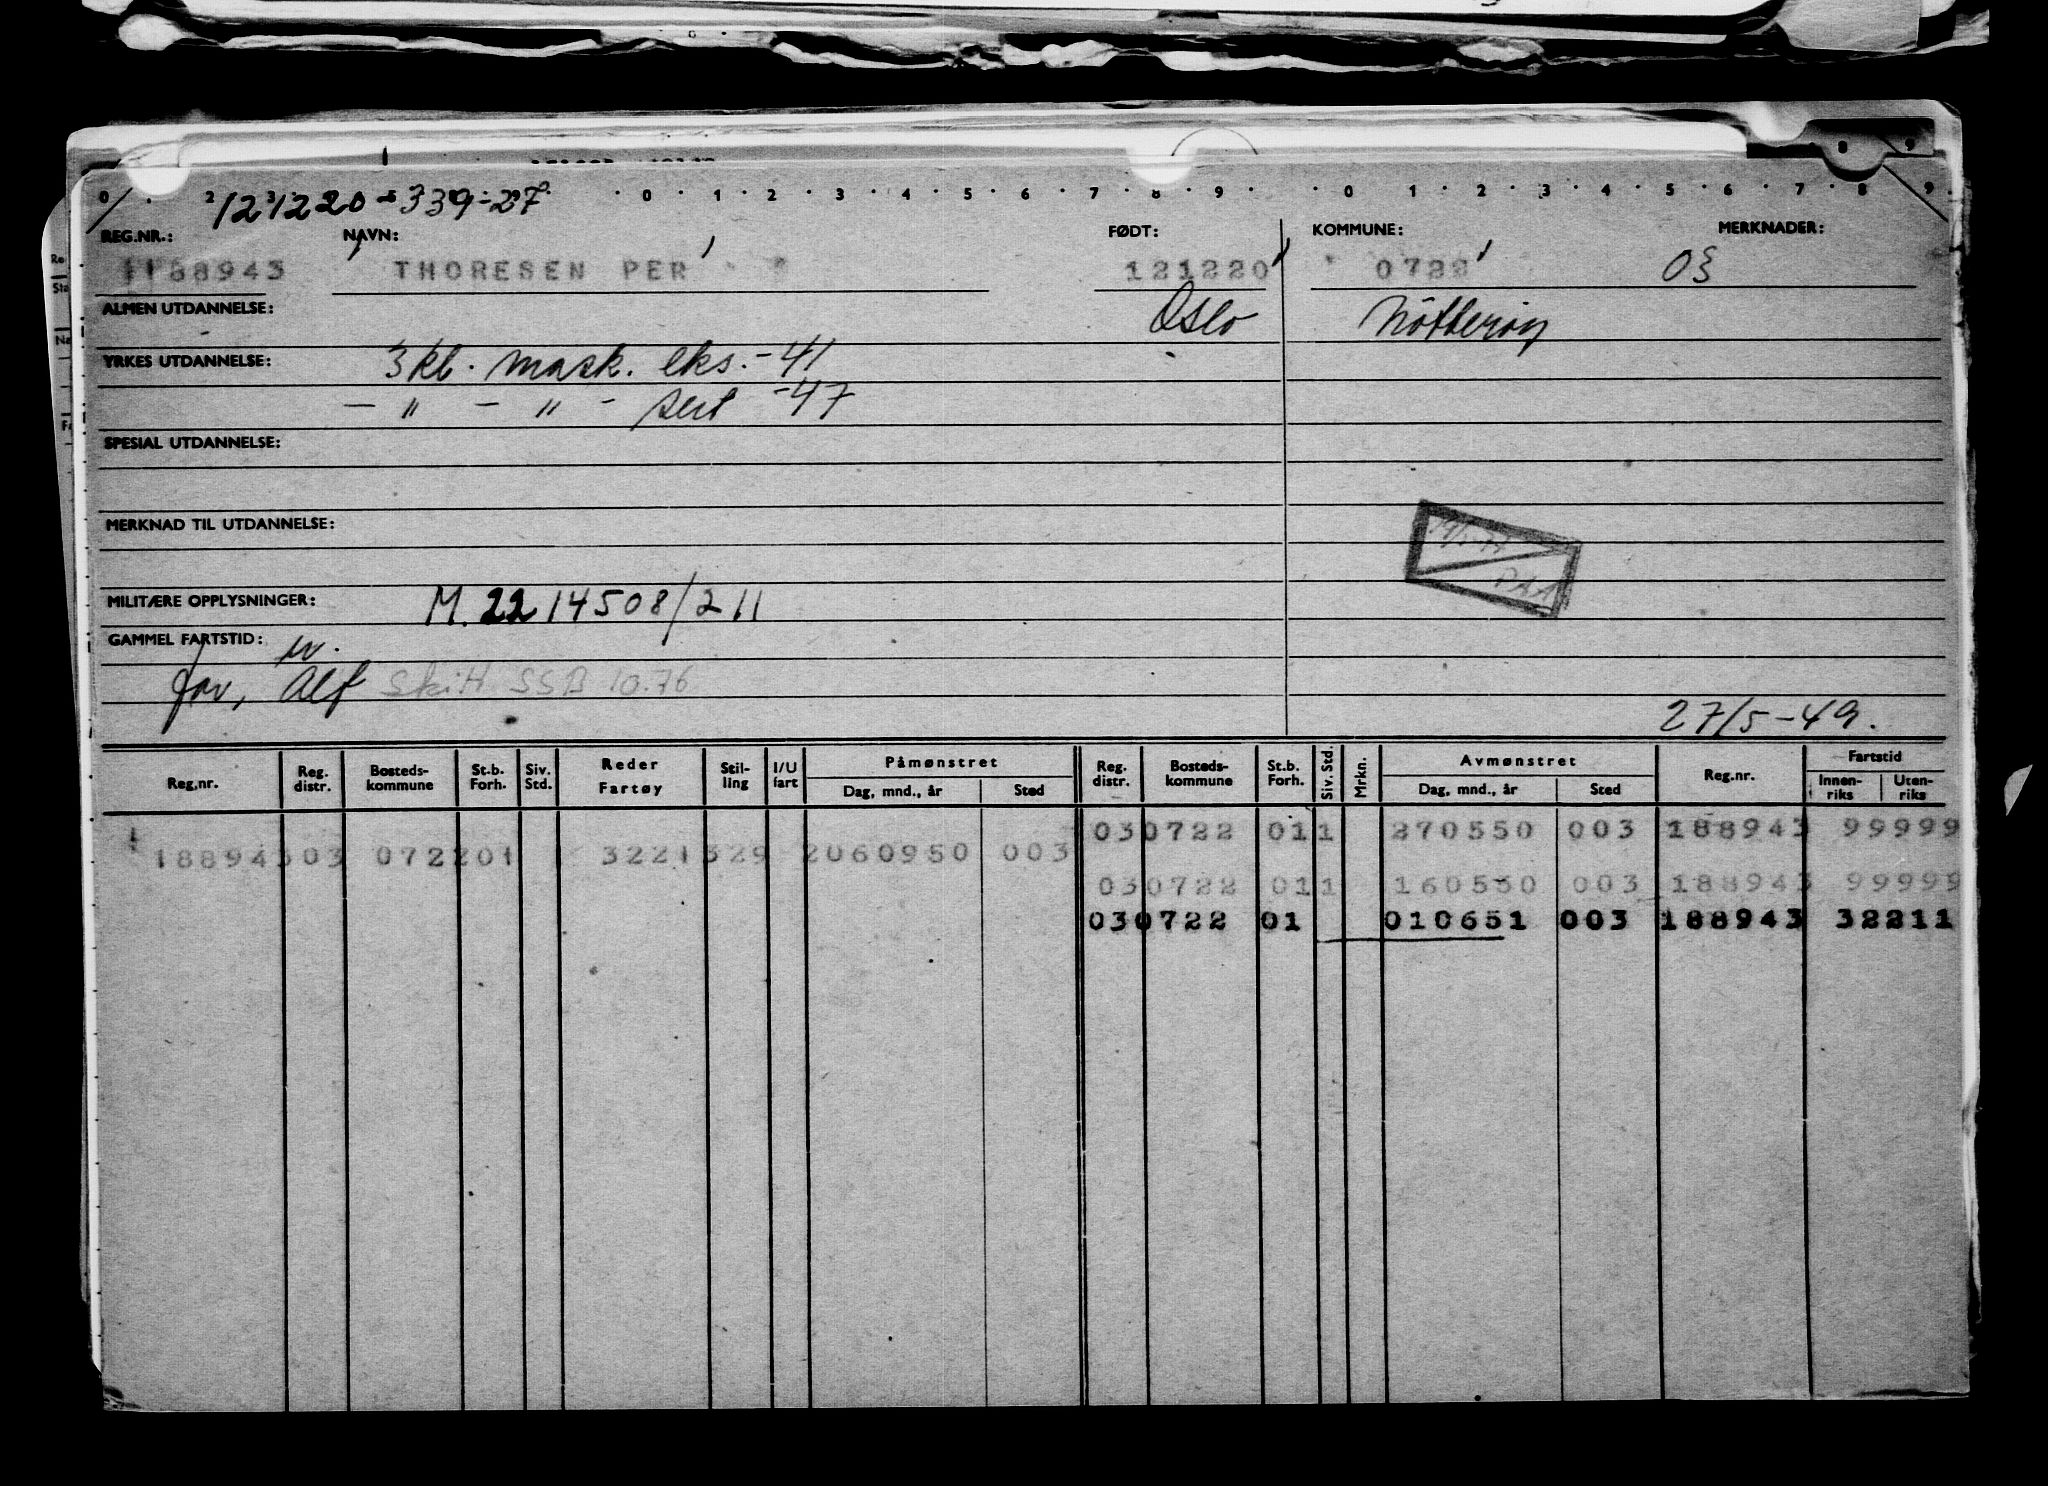 0 2 3 0 1 2 3 4 5 6 7 8 9 0 1 2 3 4 5 6 7 8 9
121220-339-27
REG.NR.: NAVN: FØDT: KOMMUNE: MERKNADER:
1188943 THORESEN PER 121220 0722
ALMEN UTDANNELSE: Oslo Nötteröy
YRKES UTDANNELSE: 3 kl. mask. eks. -41
— " — " - sert -47
SPESIAL UTDANNELSE:
MERKNAD TIL UTDANNELSE:
MILITÆRE OPPLYSNINGER: M. 2214508/211
GAMMEL FARTSTID:
far, Alf
SSB 10.76
27/5-49.
Reg.nr. Reg. distr. Bosteds-kommune St.b. Forh. Siv. Std. Reder Fartøy Stil-ling I/U fart Påmønstret Dag, mnd., år Sted Reg. distr. Bosteds-kommune St.b. Forh. Siv. Std. Mrkn. Avmønstret Dag, mnd., år Sted Reg.nr. Fartstid Innen-riks Uten-riks
030722 011 270550 003 188943 99999
188943 03 072201 3221329 2060950 003
030722 011 160550 003 188943 99999
030722 01 010651 003 188943 32211